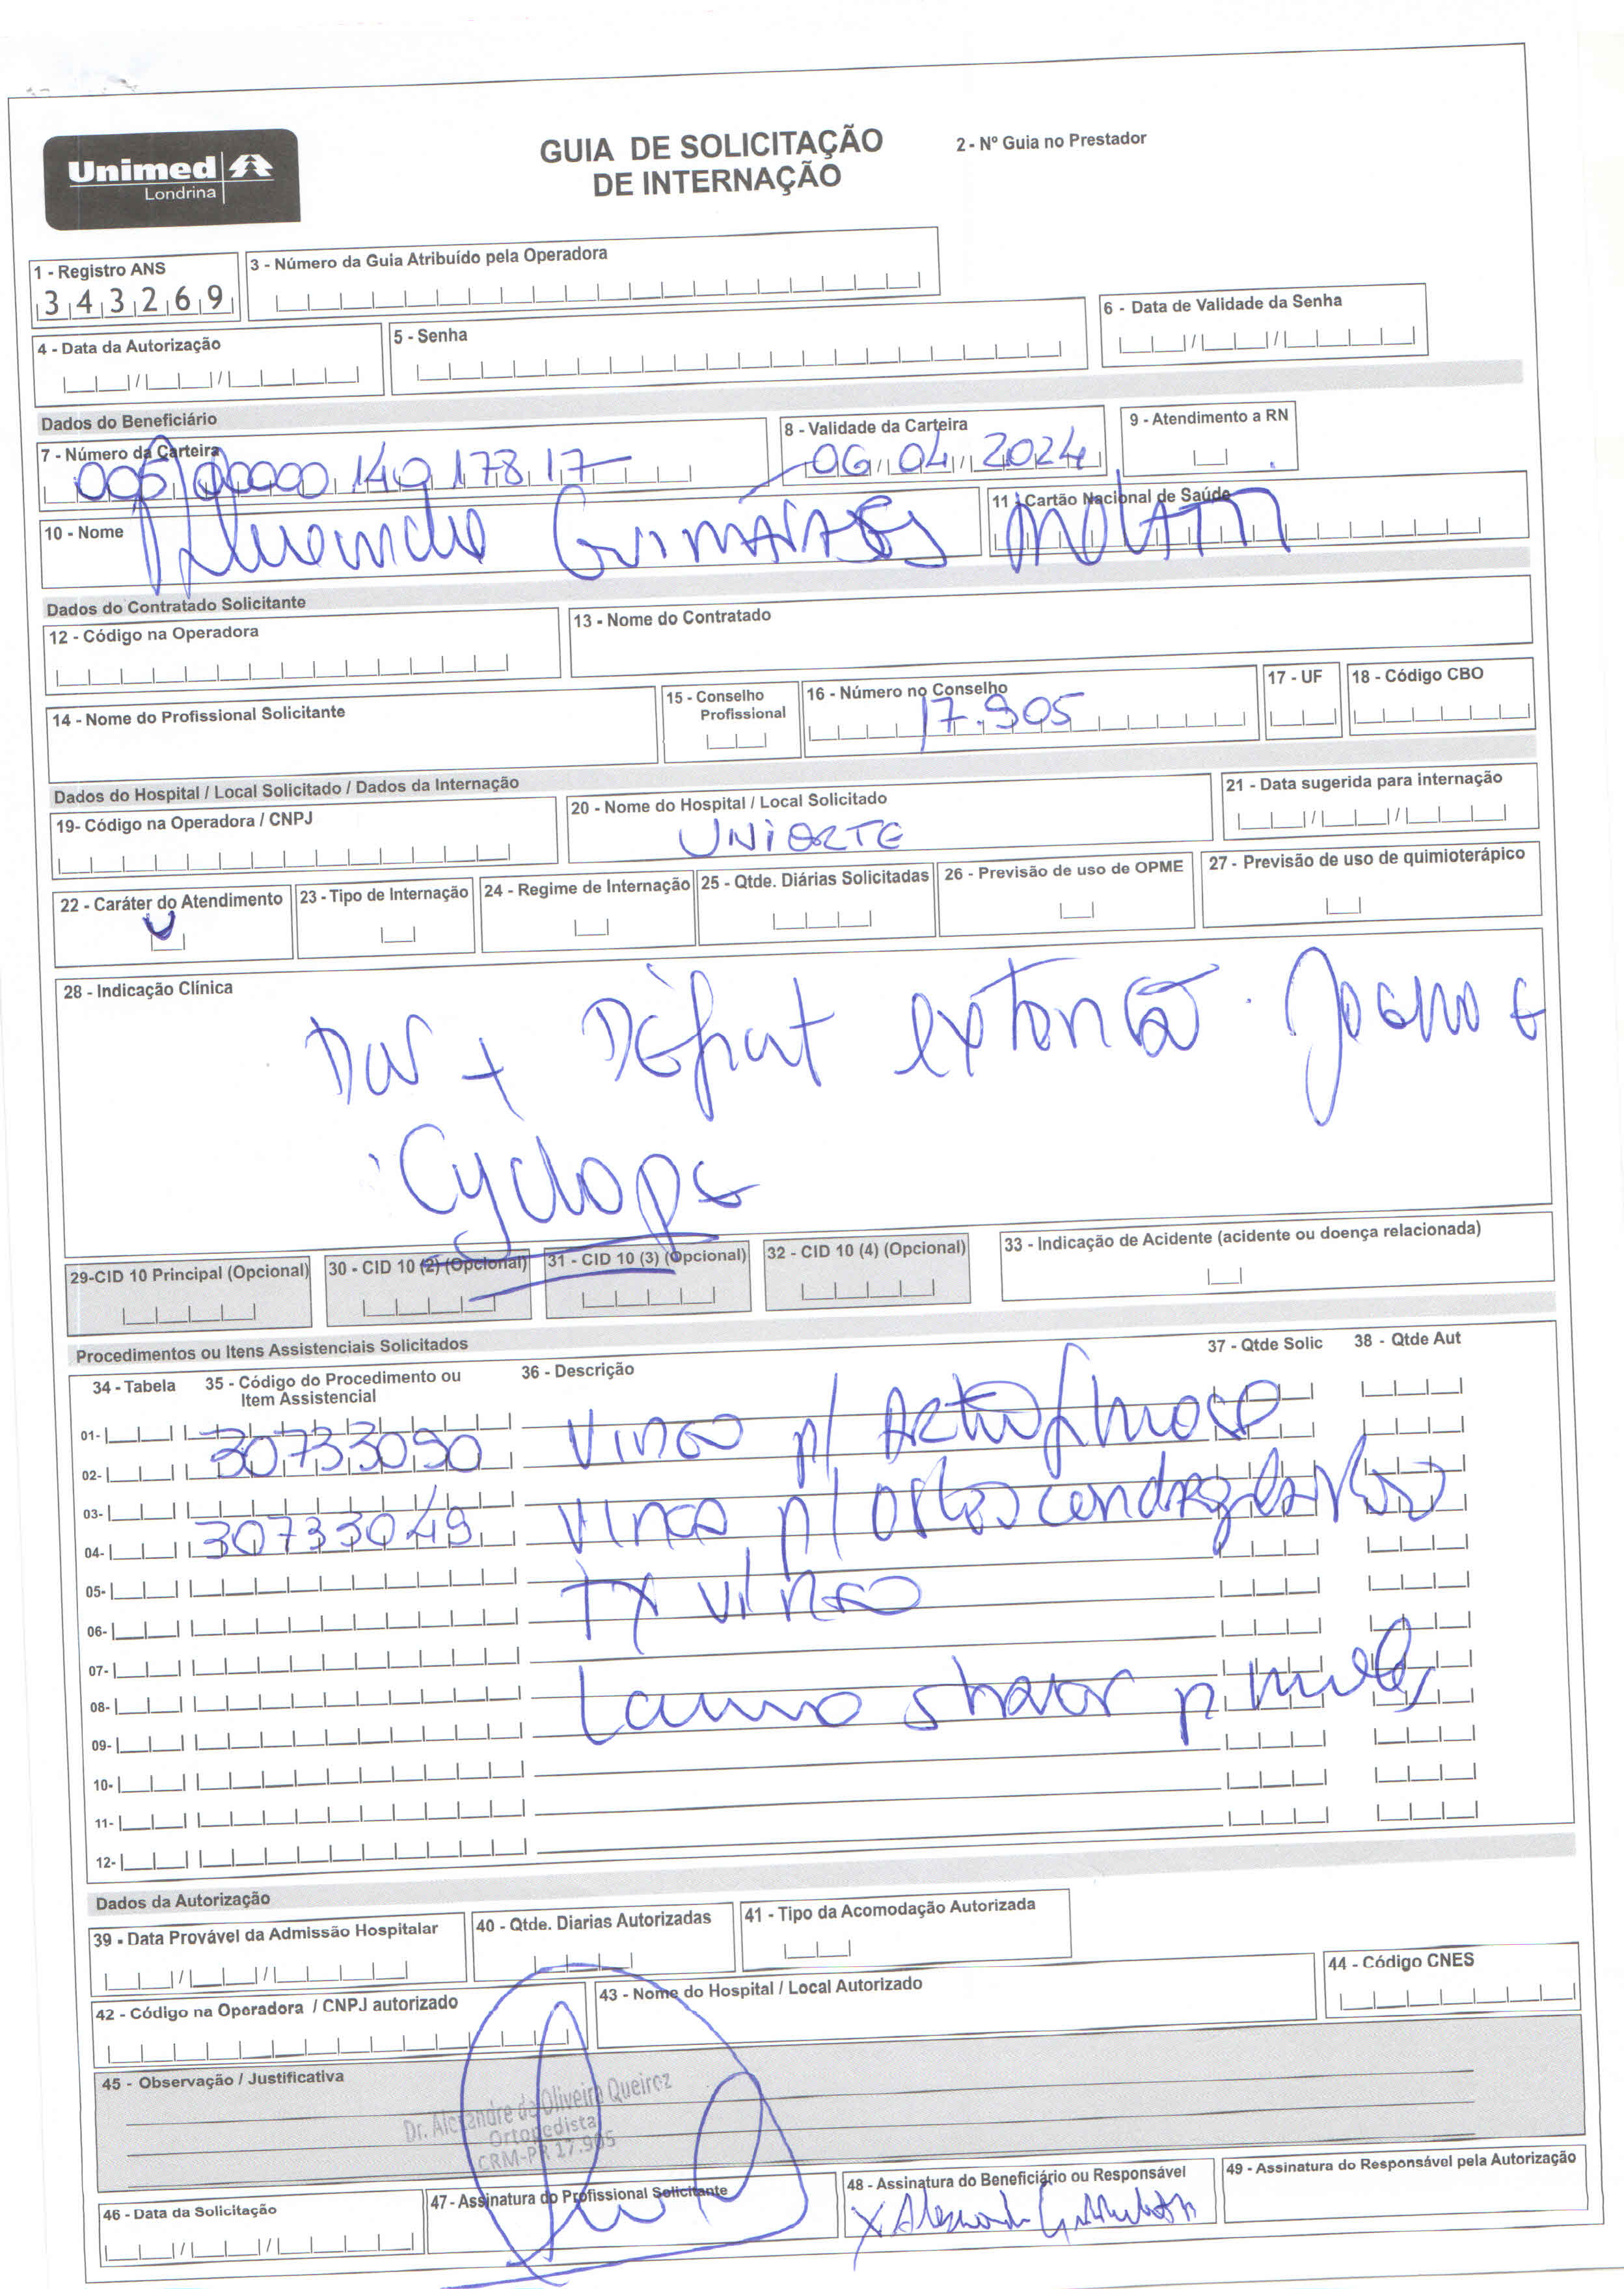 Unimed
Londrina
GUIA DE SOLICITAÇÃO
DE INTERNAÇÃO
2 - Nº Guia no Prestador
1 - Registro ANS
343269
3 - Número da Guia Atribuído pela Operadora
4 - Data da Autorização
5 - Senha
6 - Data de Validade da Senha
Dados do Beneficiário
7 - Número da Carteira
8 - Validade da Carteira
06 04 2024
9 - Atendimento a RN
10 - Nome
Guimarães
11 - Cartão Nacional de Saúde
Dados do Contratado Solicitante
12 - Código na Operadora
13 - Nome do Contratado
14 - Nome do Profissional Solicitante
15 - Conselho Profissional
16 - Número no Conselho
17.905
17 - UF
18 - Código CBO
Dados do Hospital / Local Solicitado / Dados da Internação
19- Código na Operadora / CNPJ
20 - Nome do Hospital / Local Solicitado
UNIORTE
21 - Data sugerida para internação
22 - Caráter do Atendimento
U
23 - Tipo de Internação
24 - Regime de Internação
25 - Qtde. Diárias Solicitadas
26 - Previsão de uso de OPME
27 - Previsão de uso de quimioterápico
28 - Indicação Clínica
Dor + Déficit extensão Joelho E
Cyclope
29-CID 10 Principal (Opcional)
30 - CID 10 (2) (Opcional)
31 - CID 10 (3) (Opcional)
32 - CID 10 (4) (Opcional)
33 - Indicação de Acidente (acidente ou doença relacionada)
Procedimentos ou Itens Assistenciais Solicitados
34 - Tabela
35 - Código do Procedimento ou Item Assistencial
36 - Descrição
37 - Qtde Solic
38 - Qtde Aut
01-
02- 30733090 p/
03-
04- 30733049 p/
05-
06- Tx video
07-
08- shaver
09-
10-
11-
12-
Dados da Autorização
39 - Data Provável da Admissão Hospitalar
40 - Qtde. Diarias Autorizadas
41 - Tipo da Acomodação Autorizada
42 - Código na Operadora / CNPJ autorizado
43 - Nome do Hospital / Local Autorizado
44 - Código CNES
45 - Observação / Justificativa
Dr. Alexandre de Oliveira Queiroz
Ortopedista
CRM-PR 17.905
46 - Data da Solicitação
47 - Assinatura do Profissional Solicitante
48 - Assinatura do Beneficiário ou Responsável
49 - Assinatura do Responsável pela Autorização